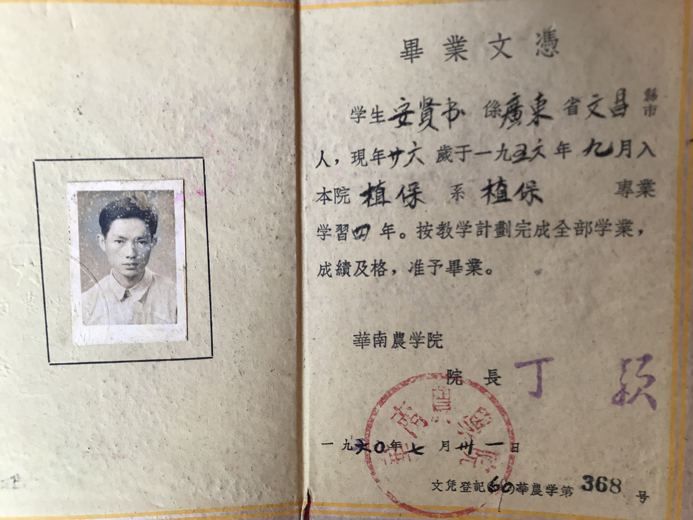 畢業文憑
学生安贤书 係廣東省文昌縣市
人，現年廿六歲于一九五六年九月入
本院植保系植保專業
学習四年。按教学計劃完成全部学業，
成績及格，准予畢業。
華南農学院
院長丁颖
一九六〇年七月卅一日
文凭登記60華農学第368号